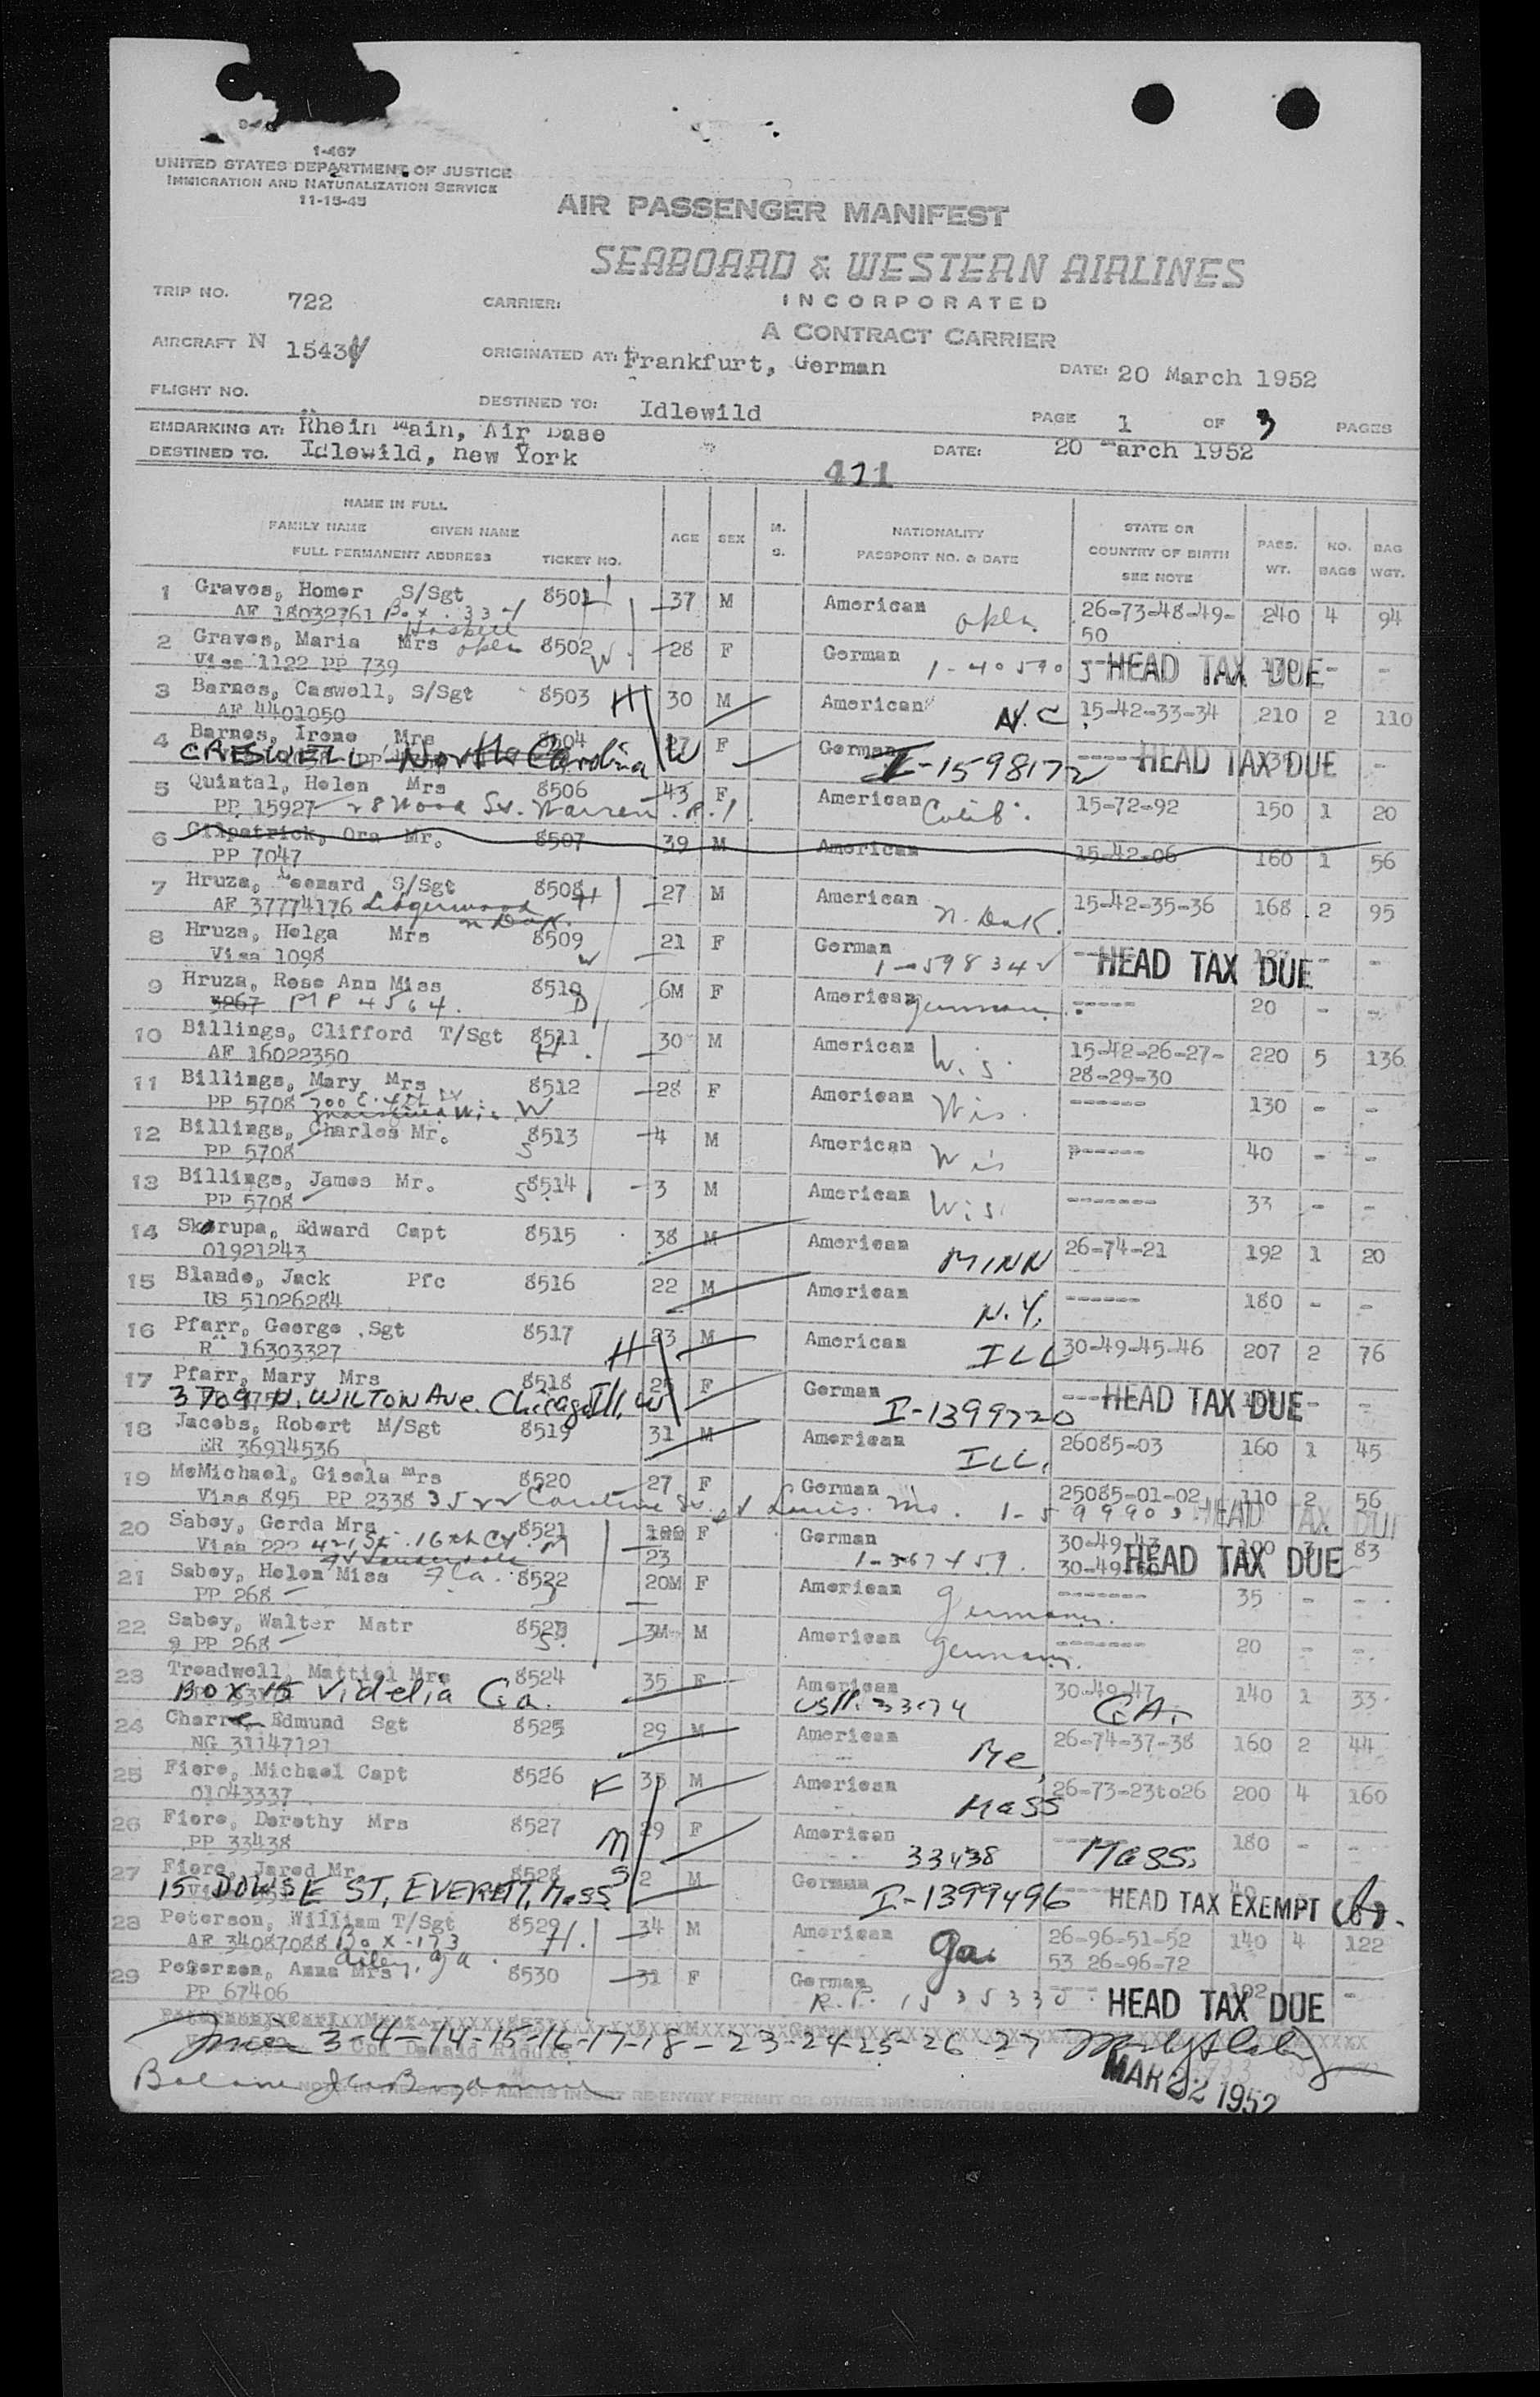 1-467
UNITED STATES DEPARTMENT OF JUSTICE
IMMIGRATION AND NATURALIZATION SERVICE
11-15-45
AIR PASSENGER MANIFEST
SEABOARD & WESTERN AIRLINES
INCORPORATED
A CONTRACT CARRIER
TRIP NO. 722 CARRIER:
AIRCRAFT N 1543 ORIGINATED AT: Frankfurt, German DATE: 20 March 1952
FLIGHT NO. DESTINED TO: Idlewild PAGE 1 OF 3 PAGES
EMBARKING AT: Rhein Main, Air Base
DESTINED TO. Idlewild, new York DATE: 20 March 1952
471
NAME IN FULL
FAMILY NAME GIVEN NAME
FULL PERMANENT ADDRESS TICKET NO. AGE SEX M. S. NATIONALITY PASSPORT NO. & DATE STATE OR COUNTRY OF BIRTH SEE NOTE PASS. WT. NO. BAGS BAG WGT.
1 Graves, Homer S/Sgt 8501 H 37 M American Okla. 26-73-48-49- 240 4 94
AF 18032761 Box 334 50
Haskell
2 Graves, Maria Mrs Okla 8502 W 28 F German HEAD TAX DUE - -
Visa 1122 PP 739
3 Barnes, Caswell, S/Sgt 8503 H 30 M American N.C. 15-42-33-34 210 2 110
AF 4401050
4 Barnes, Irene Mrs 8504 W 27 F German I-1598172 HEAD TAX DUE -
CRESWELL North Carolina
5 Quintal, Helen Mrs 8506 43 F American Calif. 15-72-92 150 1 20
PP 15927 28 Wood St. Warren. R.I.
6 Gilpatrick, Ora Mr. 8507 39 M American 15-42-06 160 1 56
PP 7047
7 Hruza, Leonard S/Sgt 8508 H 27 M American N. Dak. 15-42-35-36 168 2 95
AF 37774176 Lidgerwood
n Dak.
8 Hruza, Helga Mrs 8509 W 21 F German HEAD TAX DUE - -
Visa 1098
9 Hruza, Rose Ann Miss 8510 D 6M F American Germany. ----- 20 - -
3967 PP 4564.
10 Billings, Clifford T/Sgt 8511 H. 30 M American Wis. 15-42-26-27- 220 5 136
AF 16022350 28-29-30
11 Billings, Mary Mrs 8512 W 28 F American Wis. ------ 130 - -
PP 5708 700 E. 4th St
12 Billings, Charles Mr. 8513 S 4 M American Wis ------ 40 - -
PP 5708
13 Billings, James Mr. 8514 S 3 M American Wis. ------- 33 - -
PP 5708
14 Skorupa, Edward Capt 8515 38 M American MINN 26-74-21 192 1 20
01921243
15 Blando, Jack Pfc 8516 22 M American N.Y. ------ 180 - -
US 51026284
16 Pfarr, George Sgt 8517 H 23 M American ILL 30-49-45-46 207 2 76
R 16303327
17 Pfarr, Mary Mrs 8518 W 25 F German I-1399720 HEAD TAX DUE - -
3709 N. WILTON Ave. Chicago Ill.
18 Jacobs, Robert M/Sgt 8519 31 M American ILL. 26085-03 160 1 45
ER 36914536
19 McMichael, Gisela Mrs 8520 27 F German 25085-01-02 110 2 56
Visa 895 PP 2338 3522 Caroline St. St Louis. Mo. HEAD TAX DUE
20 Sabey, Gerda Mrs 8521 M F German 30-49-43 100 3 83
Visa 222 421 SE. 16th Ct. 23 HEAD TAX DUE
Ft Lauderdale
21 Sabey, Helen Miss Fla. 8522 20M F American Germany. ------- 35 - -
PP 268
22 Sabey, Walter Mstr 8523 S. 3M M American Germany. ------- 20 - -
9 PP 268
23 Treadwell, Mattiel Mrs 8524 35 F American 30-49-47 140 1 33
BOX 15 Videlia Ga. GA.
24 Edmund Sgt 8525 29 M American Me. 26-74-37-38 160 2 44
NG 31147121
25 Fiore, Michael Capt 8526 F 33 M American MASS 26-73-23to26 200 4 160
01043337
26 Fiore, Dorothy Mrs 8527 M 29 F American 33438 MASS. 180 - -
PP 33438
27 Fiore, Jared Mr 8528 S 2 M German I-1399496 HEAD TAX EXEMPT
15 DOWSE ST, EVERETT, Mass
28 Peterson, William T/Sgt 8529 H. 34 M American Ga. 26-96-51-52 140 4 122
AF 34087088 Box-173 53 26-96-72
Ailey, Ga.
29 Peterson, Anna Mrs 8530 31 F German HEAD TAX DUE -
PP 67406
3-4-14-15-16-17-18-23-24-25-26-27
Balance
MAR 22 1952